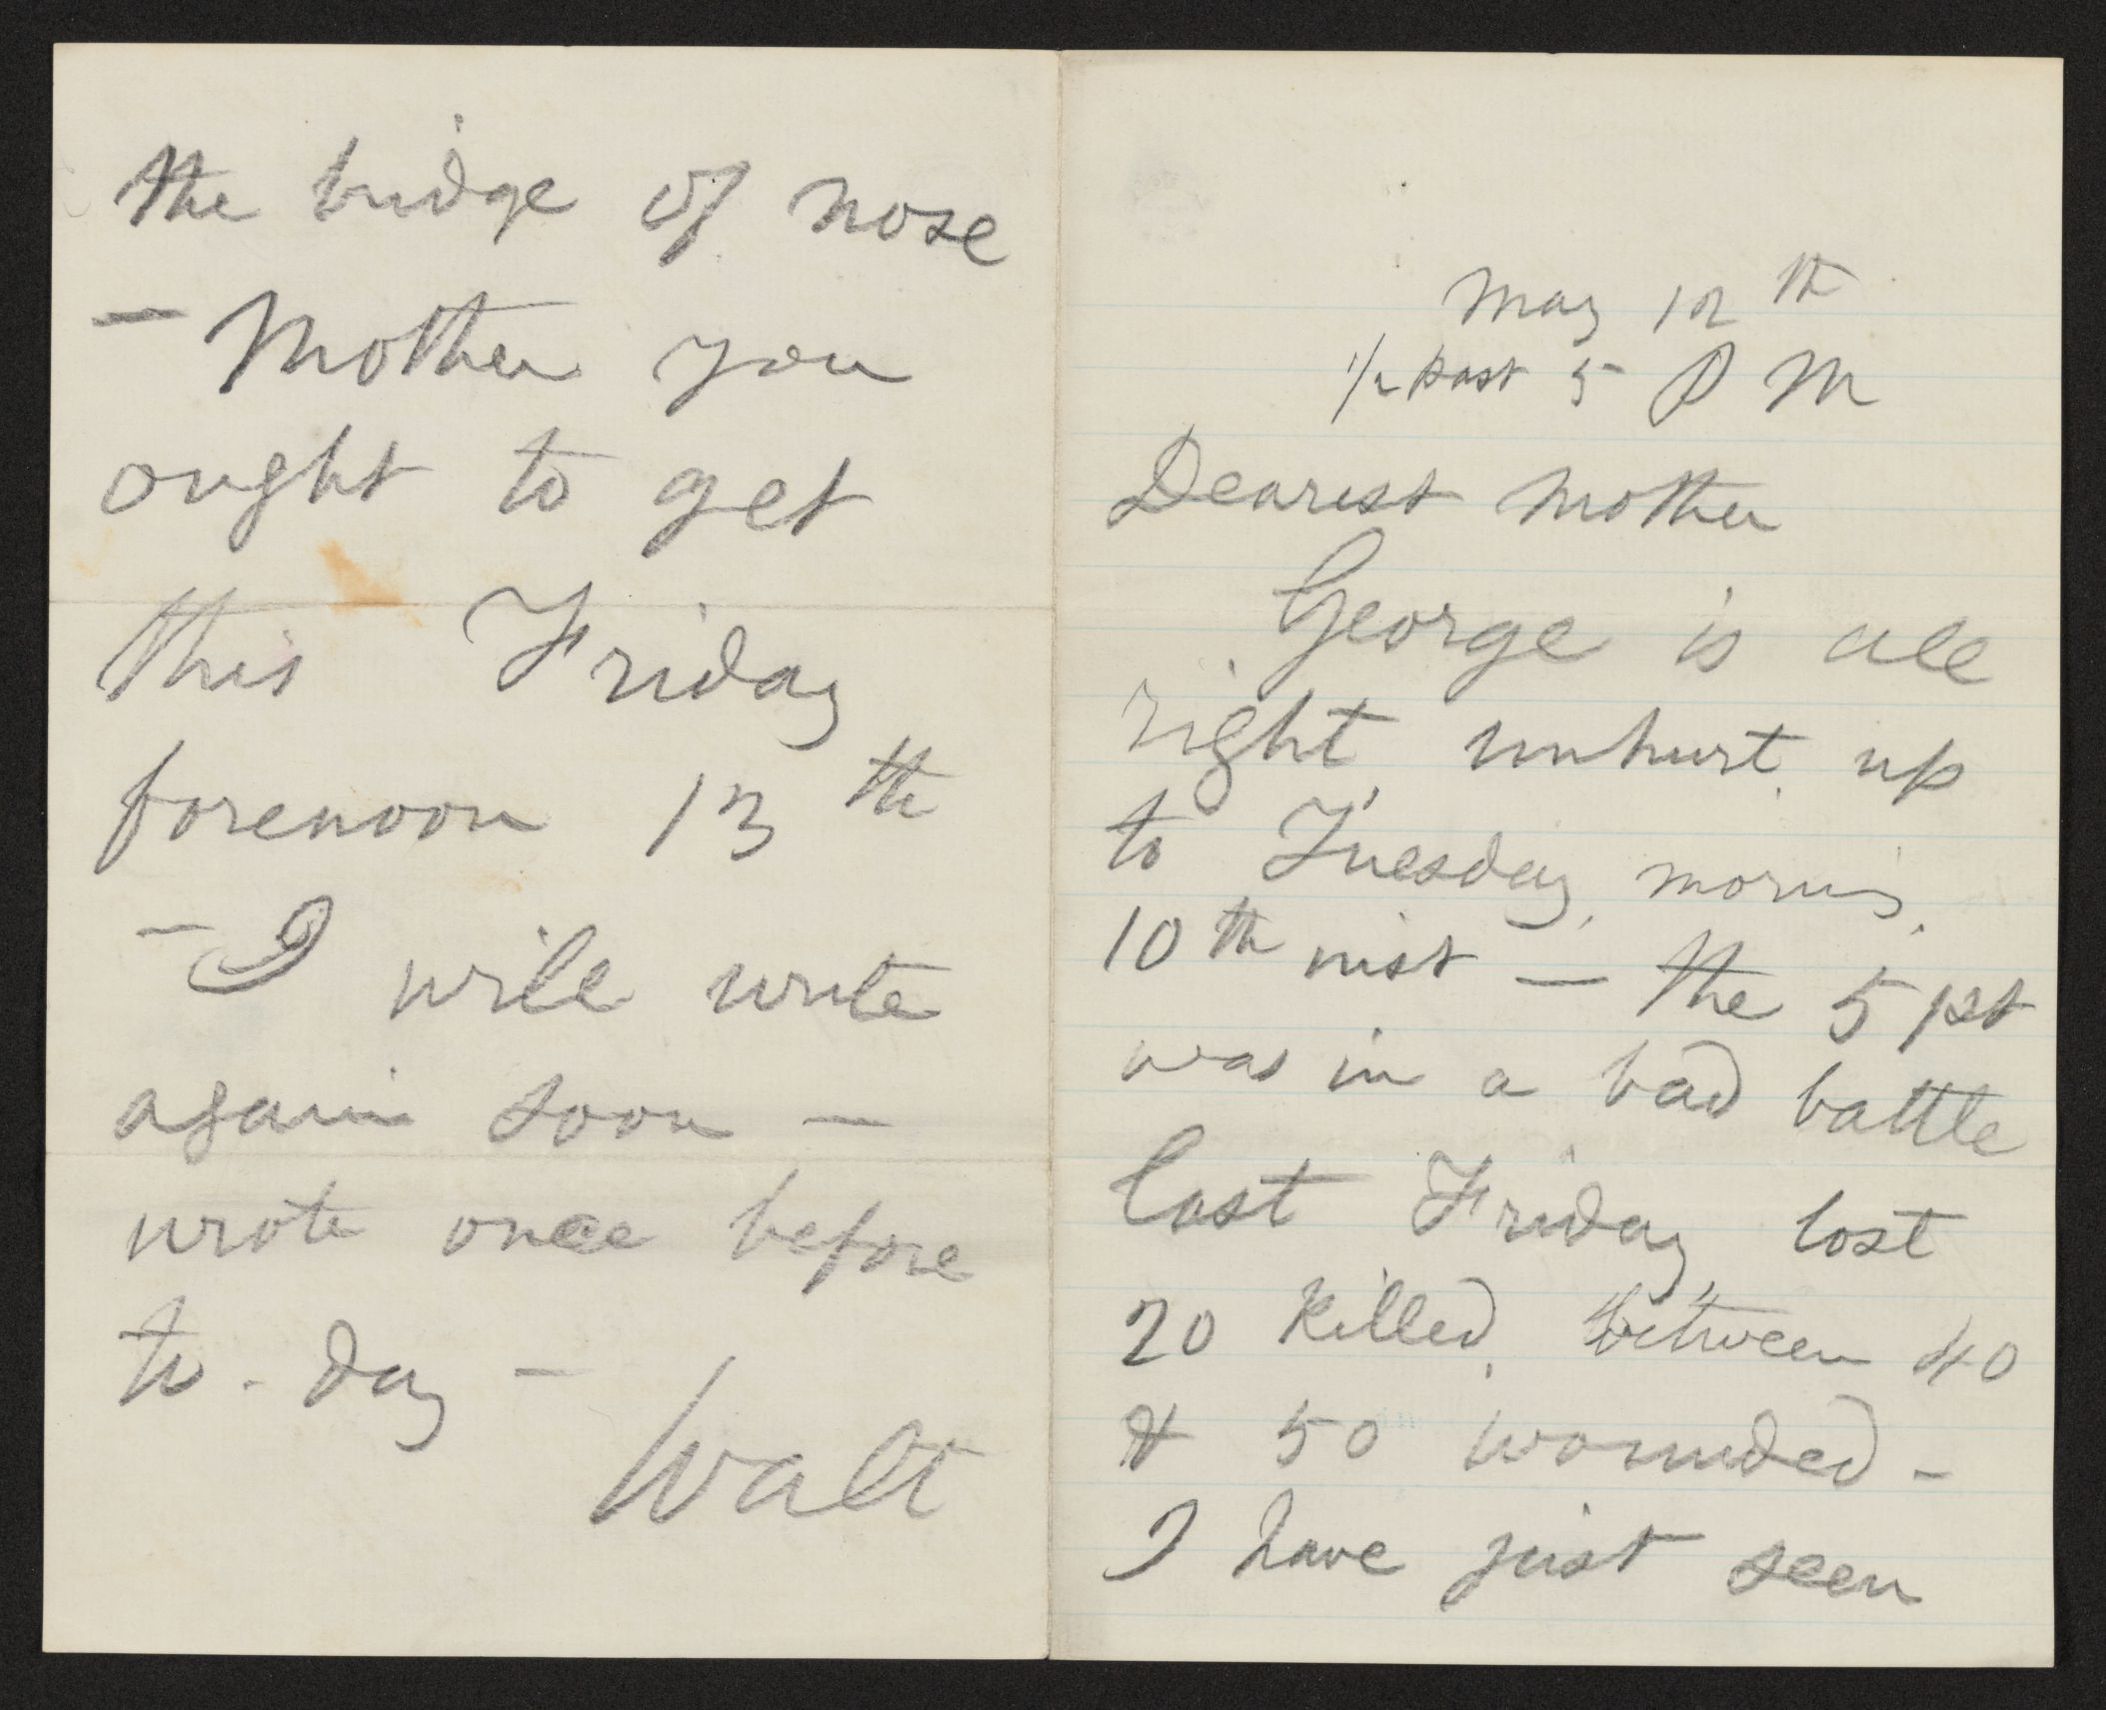 the bridge of nose
– Mother you
ought to get
this Friday
forenoon 13th
– I will write
again soon –
wrote once before
to-day –
Walt
May 12th
1/2 past 5 P M
Dearest Mother
George is all
right, unhurt, up
to Tuesday, morning,
10th inst – the 51st
was in a bad battle
last Friday, lost
20 killed, between 40
& 50 wounded –
I have just seen